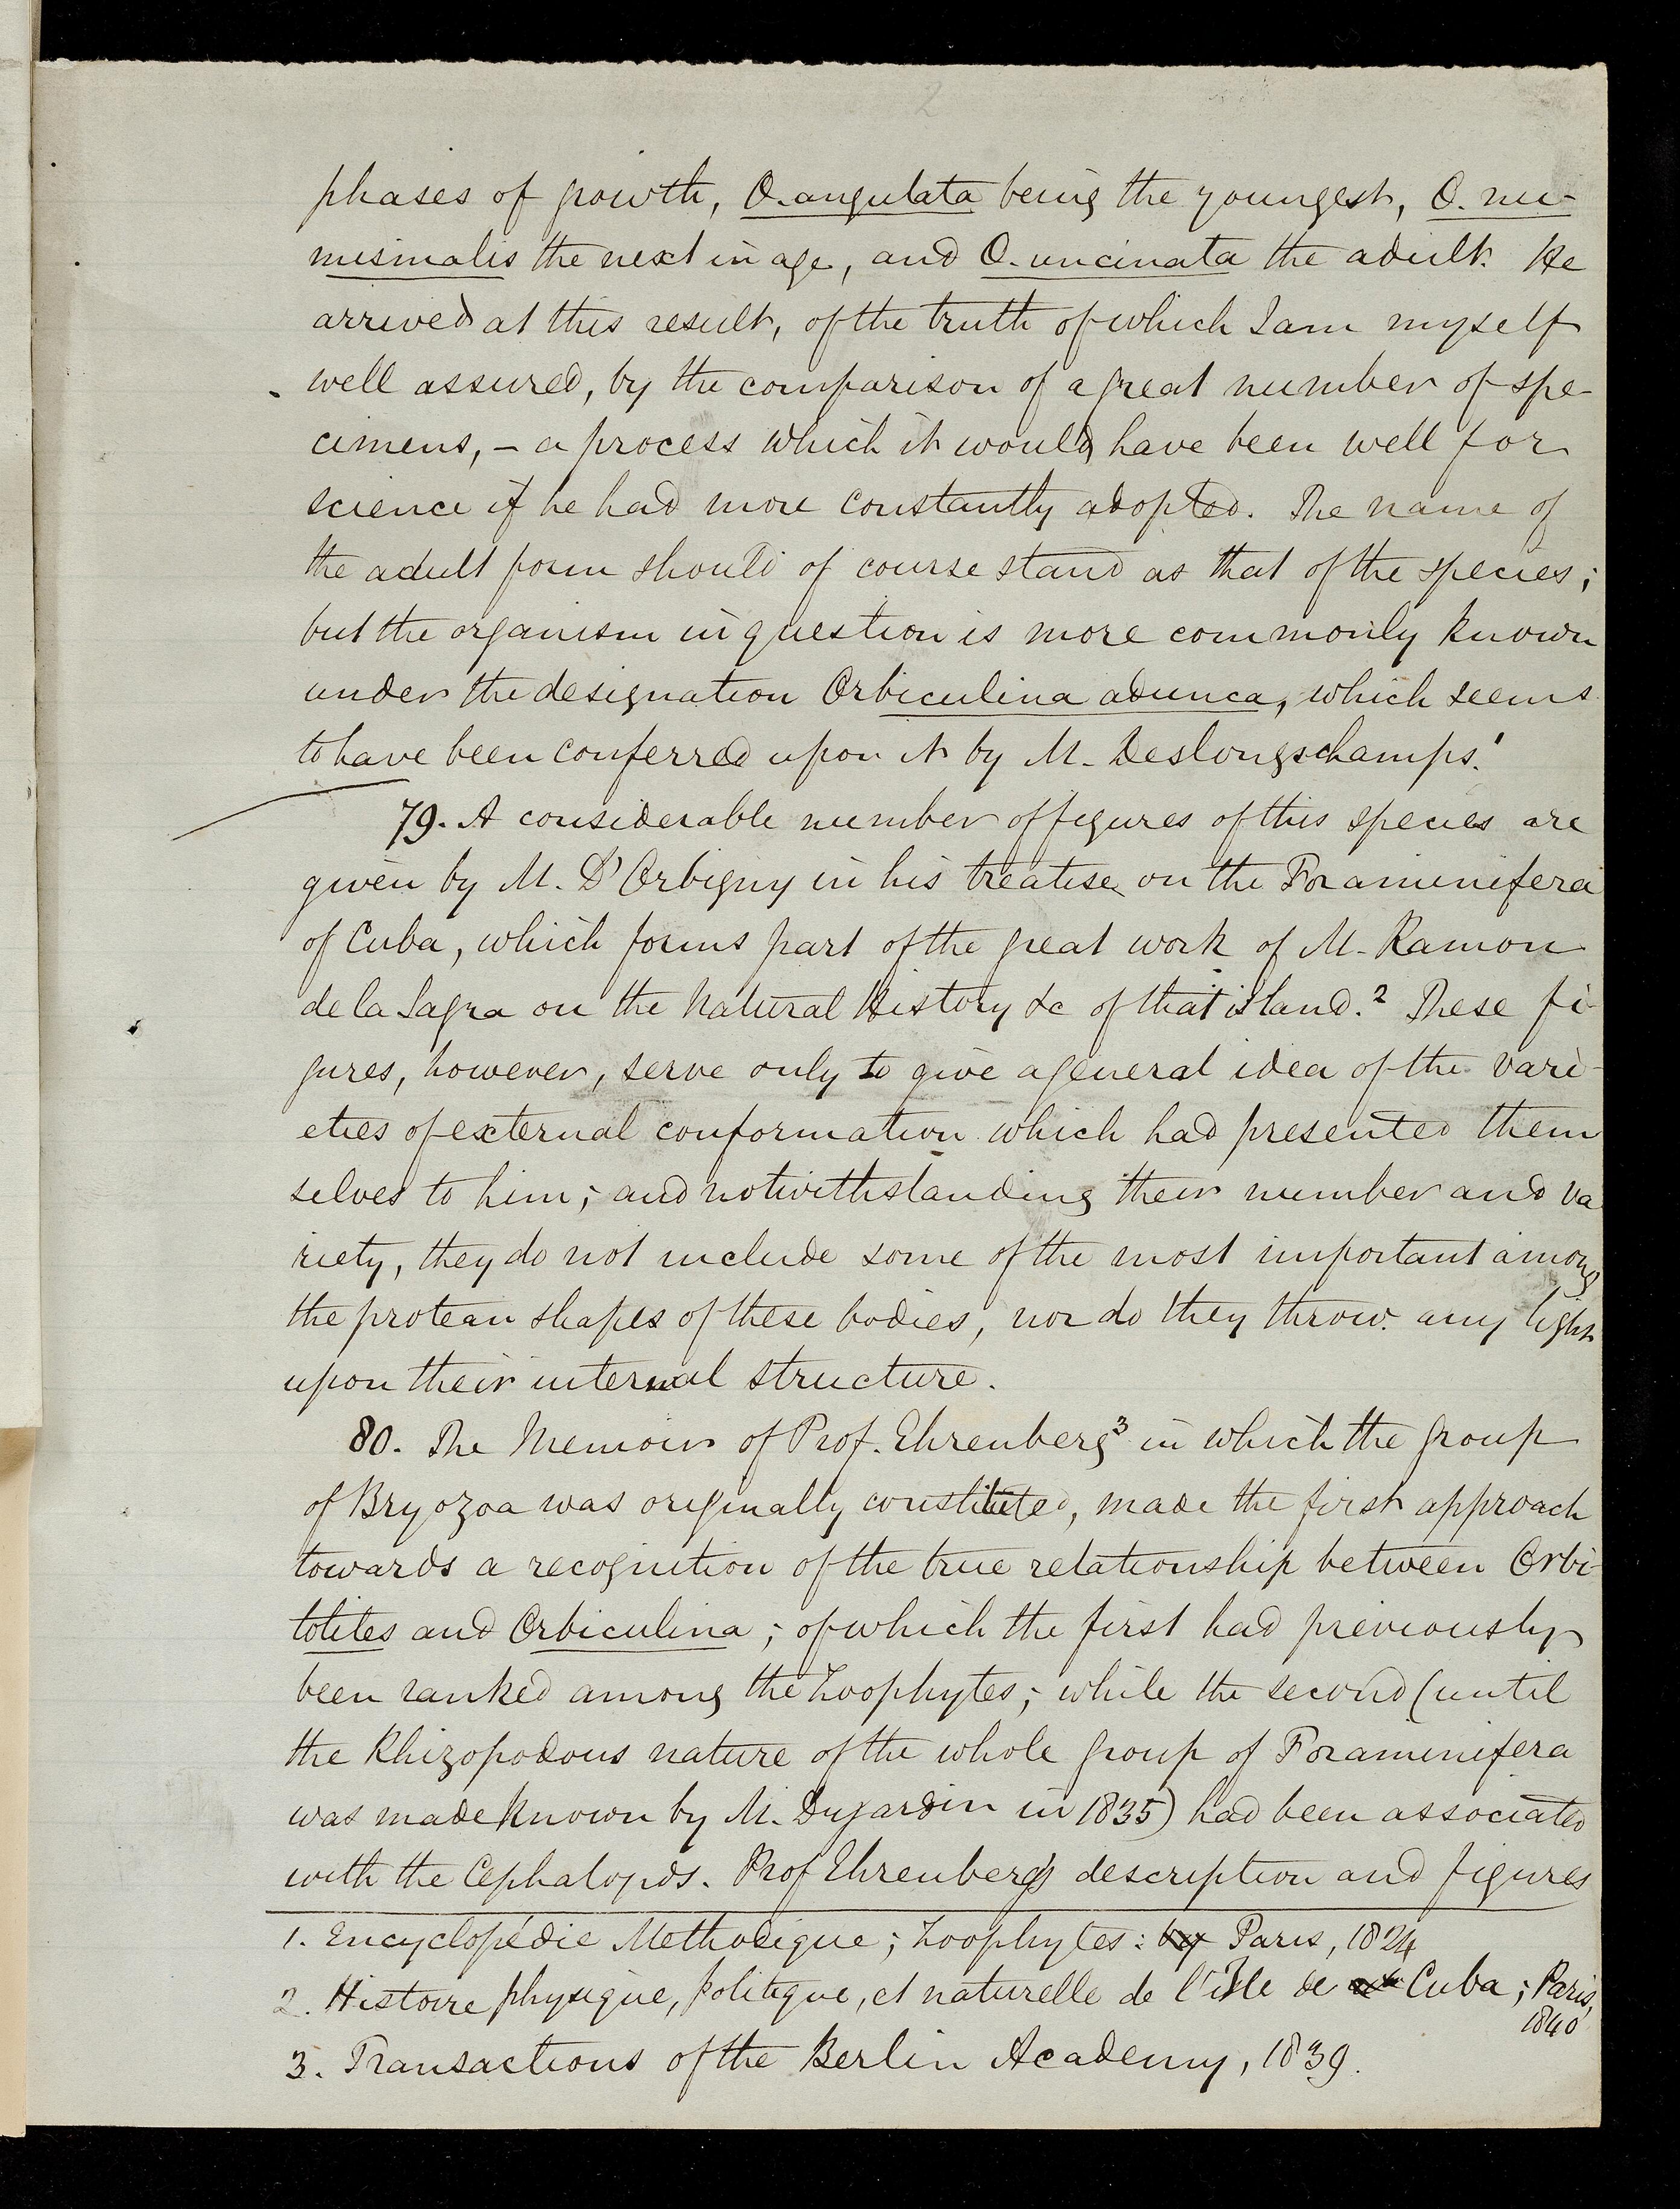 2
phases of growth, O. angulata being the youngest, O. nu-
mismalis the next in age, and O. uncinata the adult. He
arrived at this result, of the truth of which I am myself
well assured, by the comparison of a great number of spe-
cimens, - a process which it would have been well for
science if he had more constantly adopted. The name of
the adult form should of course stand as that of the species;
but the organism in question is more commonly known
under the designation Orbiculina adunca, which seems
to have been conferred upon it by M. Deslongschamps.1
79. A considerable number of figures of this species are
given by M. D'Orbigny in his treatise on the Foraminifera
of Cuba, which forms part of the great work of M. Ramon
de la Sagra on the Natural History &c of that island.2 These fi-
gures, however, serve only to give a general idea of the vari-
eties of external conformation which had presented them
selves to him; and notwithstanding their number and va
riety, they do not include some of the most important among
the protean shapes of these bodies, nor do they throw any light
upon their internal structure.
80. The Memoir of Prof. Ehrenberg3 in which the group
of Bryozoa was originally constituted, made the first approach
towards a recognition of the true relationship between Orbi-
tolites and Orbiculina; of which the first had previously
been ranked among the Zoophytes; while the second (until
the Rhizopodous nature of the whole group of Foraminifera
was made known by M. Dujardin in 1835) had been associated
with the Cephalopods. Prof Ehrenberg's description and figures
1. Encyclopédie Methodique; Zoophytes: by Paris, 1824
2. Histoire physique, politique, et naturelle de l'Isle de Cuba; Paris,
1840
3. Transactions of the Berlin Academy, 1839.